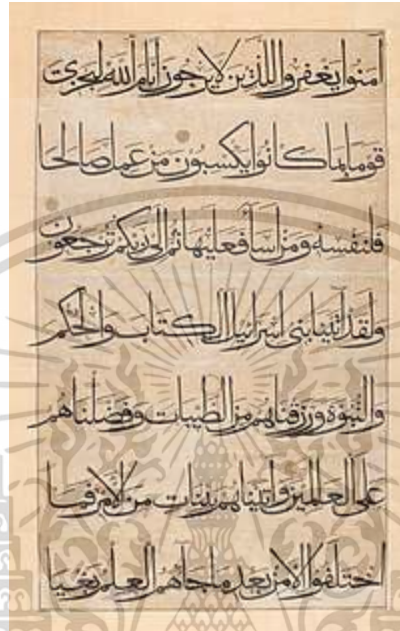 آمنوا يغفروا للذين لا يرجون أيام الله ليجزي
قوما بما كانوا يكسبون من عمل صالحا
فلنفسه ومن أسا فعليها ثم إلى ربكم ترجعون
ولقد آتينا بني اسرائيل الكتاب والحكم
والنبوة ورزقناهم من الطيبات وفضلناهم
على العالمين وآتيناهم بينات من الأمر فما
اختلفوا الا من بعد ما جاهم العلم بغيا